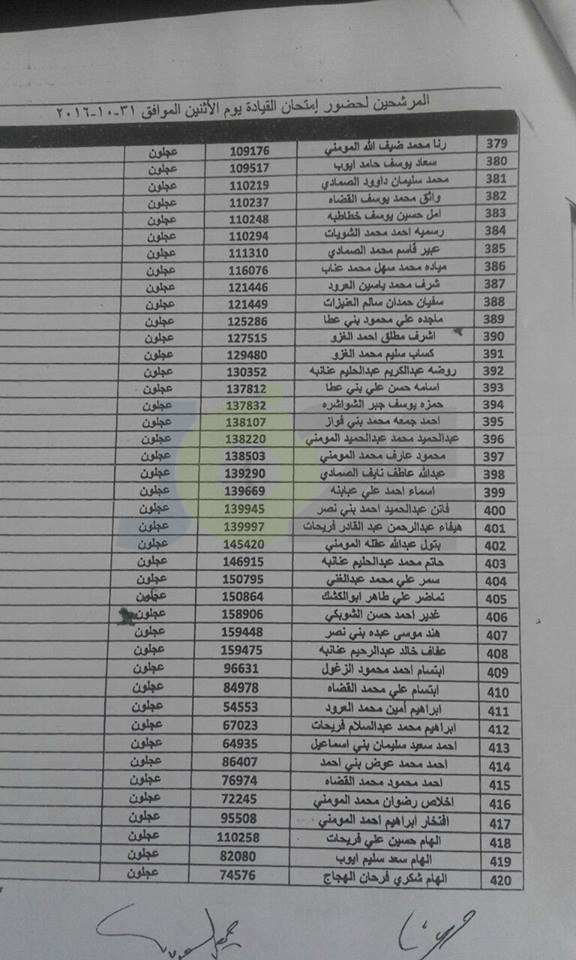 المرشحين لحضور إمتحان القيادة يوم الأثنين الموافق ٣١-١٠-٢٠١٦
379 رنا محمد ضيف الله المومني 109176 عجلون
380 سعاد يوسف حامد ايوب 109517 عجلون
381 محمد سليمان داوود الصمادي 110219 عجلون
382 واثق محمد يوسف القضاه 110237 عجلون
383 امل حسين يوسف خطاطبه 110248 عجلون
384 رسميه احمد محمد الشويات 110294 عجلون
385 عبير قاسم محمد الصمادي 111310 عجلون
386 مياده محمد سهل محمد عناب 116076 عجلون
387 شرف محمد ياسين العرود 121446 عجلون
388 سفيان حمدان سالم العنيزات 121449 عجلون
389 ماجده علي محمود بني عطا 125286 عجلون
390 اشرف مطلق احمد الغزو 127515 عجلون
391 كساب سليم محمد الغزو 129480 عجلون
392 روضه عبدالكريم عبدالحليم عنانبه 130352 عجلون
393 اسامه حسن علي بني عطا 137812 عجلون
394 حمزه يوسف جبر الشواشره 137832 عجلون
395 احمد جمعه محمد بني فواز 138107 عجلون
396 عبدالحميد محمد عبدالحميد المومني 138220 عجلون
397 محمود عارف محمد المومني 138503 عجلون
398 عبدالله عاطف نايف الصمادي 139290 عجلون
399 اسماء احمد علي عبابنه 139669 عجلون
400 فاتن عبدالحميد احمد بني نصر 139945 عجلون
401 هيفاء عبدالرحمن عبد القادر فريحات 139997 عجلون
402 بتول عبدالله عقله المومني 145420 عجلون
403 حاتم محمد عبدالحليم عنانبه 146915 عجلون
404 سمر علي محمد عبدالغني 150795 عجلون
405 تماضر علي طاهر ابوالكشك 150864 عجلون
406 غدير احمد حسن الشوبكي 158906 عجلون
407 هند موسى عبده بني نصر 159448 عجلون
408 عفاف خالد عبدالرحيم عنانبه 159475 عجلون
409 ابتسام احمد محمود الزغول 96631 عجلون
410 ابتسام علي محمد القضاه 84978 عجلون
411 ابراهيم أمين محمد العرود 54553 عجلون
412 ابراهيم محمد عبدالسلام فريحات 67023 عجلون
413 احمد سعيد سليمان بني اسماعيل 64935 عجلون
414 احمد محمد عوض بني احمد 86407 عجلون
415 احمد محمود محمد القضاه 76974 عجلون
416 اخلاص رضوان محمد المومني 72245 عجلون
417 افتخار ابراهيم احمد المومني 95508 عجلون
418 الهام حسين علي فريحات 110258 عجلون
419 الهام سعد سليم ايوب 82080 عجلون
420 الهام شكري فرحان الهجاج 74576 عجلون